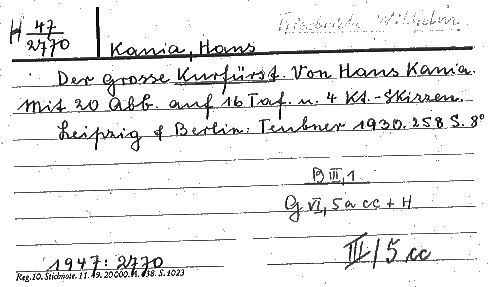 Friedrich Wilhelm
H 47/2770
Kania, Hans
Der grosse Kurfürst. Von Hans Kania.
Mit 20 Abb. auf 16 Taf. u. 4 Kt.-Skizzen.
Leipzig & Berlin: Teubner 1930. 258 S. 8°
B III, 1
G VI, 5 a cc + H
III/5 cc
1947: 2770
Reg. 10. Stichnote. 11. 49. 20000.
S. 1023